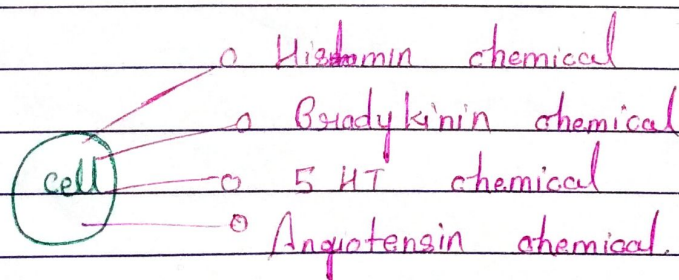 Histamin chemical
Bradykinin chemical
cell
5 HT chemical
Angiotensin chemical.